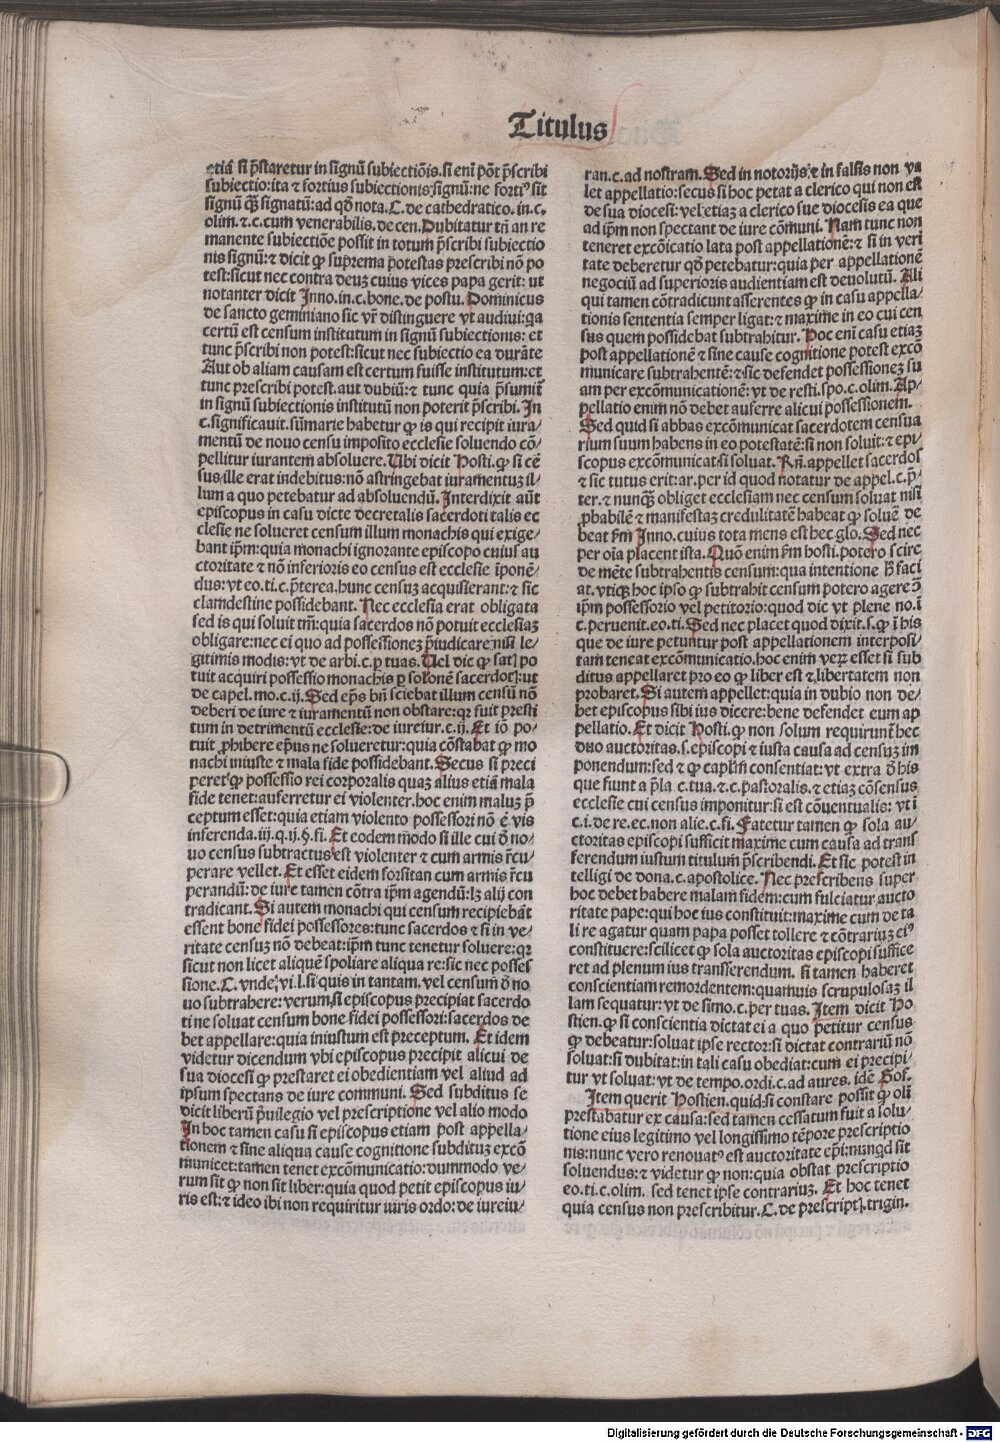 Titulus
etiā si p̄staretur in signū subiectiōis. si eni᷑ pōt p̄scribi
subiectio: ita ⁊ fortius subiectionis signū: ne forti⁹ sit
signū qȝ signatū: ad qd̄ nota. C. de cathedratico. in. c.
olim. ⁊. c. cum venerabilis. de cen. Dubitatur tn̄ an re
manente subiectiōe possit in totum p̄scribi subiectio
nis signū: ⁊ dicit ꝙ suprema potestas prescribi nō po
test: sicut nec contra deuȝ cuius vices papa gerit: ut
notanter dicit Inno. in. c. bone. de postu. Dominicus
de sancto geminiano sic vr̄ distinguere vt audiui: qa
certū est censum institutum in signū subiectionis: et
tunc p̄scribi non potest: sicut nec subiectio ea durāte
Aut ob aliam causam est certum fuisse institutum: et
tunc prescribi potest. aut dubiū: ⁊ tunc quia p̄sumit᷑
in signū subiectionis institutū non poterit p̄scribi. In
c. significauit. sūmarie habetur ꝙ is qui recipit iura/
mentū de nouo censu imposito ecclesie soluendo cō/
pellitur iurantem absoluere. Ubi dicit Hosti. ꝙ si cē
sus ille erat indebitus: nō astringebat iuramentuȝ il/
lum a quo petebatur ad absoluendū. Interdixit aūt
episcopus in casu dicte decretalis sacerdoti talis ec
clesie ne solueret censum illum monachis qui exige/
bant ip̄m: quia monachi ignorante episcopo cuius au
ctoritate ⁊ nō inferioris eo census est ecclesie īponē/
dus: vt eo. ti. c. p̄terea. hunc censuȝ acquisierant: ⁊ sic
clamdestine possidebant. Nec ecclesia erat obligata
sed is qui soluit tm̄: quia sacerdos nō potuit ecclesiaȝ
obligare: nec ei quo ad possessioneȝ p̄iudicare: nisi le/
gitimis modis: vt de arbi. c. ꝑ tuas. Uel dic ꝙ satꝭ po
tuit acquiri possessio monachis ꝑ solonē sacerdotꝭ: ut
de capel. mo. c. ij. Sed ep̄s bn̄ sciebat illum censū nō
deberi de iure ⁊ iuramentū non obstare: qr fuit presti
tum in detrimentū ecclesie: de iureiur. c. ij. Et iō po/
tuit ꝓhibere ep̄us ne solueretur: quia cōstabat ꝙ mo
nachi iniuste ⁊ mala fide possidebant. Secus si preci
peret ꝙ possessio rei corporalis quaȝ alius etiā mala
fide tenet: auferretur ei violenter. hoc enim maluȝ p̄
ceptum esset: quia etiam violento possessori nō ē vis
inferenda. iij. q. ij. §. fi. Et eodem modo si ille cui d̄ no/
uo census subtractus est violenter ⁊ cum armis r̄cu/
perare vellet. Et esset eidem forsitan cum armis r̄cu
perandū: de iure tamen cōtra ip̄m agendū: lȝ alij con
tradicant. Si autem monachi qui censum recipiebāt
essent bone fidei possessores: tunc sacerdos ⁊ si in ve/
ritate censuȝ nō debeat: ip̄m tunc tenetur soluere: qr
sicut non licet aliquē spoliare aliqua re: sic nec posses
sione. C. vnde. vi. l. si quis in tantam. vel censum d̄ no
uo subtrahere: verum, si episcopus precipiat sacerdo
ti ne soluat censum bone fidei possessori: sacerdos de
bet appellare: quia iniustum est preceptum. Et idem
videtur dicendum vbi episcopus precipit alicui de
sua diocesi ꝙ prestaret ei obedientiam vel aliud ad
ipsum spectans de iure communi. Sed subditus se
dicit liberū p̄uilegio vel prescriptione vel alio modo
In hoc tamen casu si episcopus etiam post appella/
tionem ⁊ sine aliqua cause cognitione subdituȝ excō
municet: tamen tenet excōmunicatio: dummodo ve/
rum sit ꝙ non sit liber: quia quod petit episcopus iu/
ris est: ⁊ ideo ibi non requiritur iuris ordo: de iureiu/
ran. c. ad nostram. Sed in notorijs: ⁊ in falsis non va
let appellatio: secus si hoc petat a clerico qui non est
de sua diocesi: vel etiaȝ a clerico sue diocesis ea que
ad ip̄m non spectant de iure cōmuni. Nam tunc non
teneret excōicatio lata post appellationē: ⁊ si in veri
tate deberetur qd̄ petebatur: quia per appellationē
negociū ad superioris audientiam est deuolutū. Ali
qui tamen cōtradicunt asserentes ꝙ in casu appella/
tionis sententia semper ligat: ⁊ maxime in eo cui cen
sus quem possidebat subtrahitur. Hoc eni᷑ casu etiaȝ
post appellationē ⁊ sine cause cognitione potest excō
municare subtrahentē: ⁊ sic defendet possessioneȝ su
am per excōmunicationē: vt de resti. spo. c. olim. Ap/
pellatio enim nō debet auferre alicui possessionem.
Sed quid si abbas excōmunicat sacerdotem censua
rium suum habens in eo potestatē: si non soluit: ⁊ epi/
scopus excōmunicat si soluat. Rn̄. appellet sacerdos
⁊ sic tutus erit: ar. per id quod notatur de appel. c. p̄/
ter. ⁊ nunqȝ obliget ecclesiam nec censum soluat nisi
ꝓbabilē ⁊ manifestaȝ credulitatē habeat ꝙ soluē de
beat fm̄ Inno. cuius tota mens est hec glo. Sed nec
per oi᷑a placent ista. Quō enim fm̄ hosti. potero scire
de mēte subtrahentis censum: qua intentione h̄ faci
at. vtiqȝ hoc ipso ꝙ subtrahit censum potero agere ꝯ̄
ip̄m possessorio vel petitorio: quod dic vt plene no. ī
c. peruenit. eo. ti. Sed nec placet quod dixit. s. ꝙ ī his
que de iure petuntur post appellationem interposi/
tam teneat excōmunicatio. hoc enim veꝝ esset si sub
ditus appellaret pro eo ꝙ liber est ⁊ libertatem non
probaret. Si autem appellet: quia in dubio non de/
bet episcopus sibi ius dicere: bene defendet eum ap
pellatio. Et dicit Hosti. ꝙ non solum requirunt᷑ hec
duo auctoritas. s. episcopi ⁊ iusta causa ad censuȝ im
ponendum: sed ⁊ ꝙ capl̄m consentiat: vt extra d̄ his
que fiunt a p̄la. c. tua. ⁊. c. pastoralis. ⁊ etiaȝ cōsensus
ecclesie cui census imponitur: si est cōuentualis: vt ī
c. i. de re. ec. non alie. c. fi. Fatetur tamen ꝙ sola au/
ctoritas episcopi sufficit maxime cum causa ad trans
ferendum iustum titulum p̄scribendi. Et sic potest in
telligi de dona. c. apostolice. Nec prescribens super
hoc debet habere malam fidem: cum fulciatur aucto
ritate pape: qui hoc ius constituit: maxime cum de ta
li re agatur quam papa posset tollere ⁊ cōtrariuȝ ei⁹
constituere: scilicet ꝙ sola auctoritas episcopi suffice
ret ad plenum ius transferendum. si tamen haberet
conscientiam remordentem: quamuis scrupulosaȝ il
lam sequatur: vt de simo. c. per tuas. Item dicit Ho
stien. ꝙ si conscientia dictat ei a quo petitur census
ꝙ debeatur: soluat ipse rector: si dictat contrariū nō
soluat: si dubitat: in tali casu obediat: cum ei precipi/
tur vt soluat: vt de tempo. ordi. c. ad aures. idē Gof.
Item querit Hostien. quid: si constare possit ꝙ oli᷑
prestabatur ex causa: sed tamen cessatum fuit a solu/
tione eius legitimo vel longissimo tēpore prescriptio
nis: nunc vero renouat⁹ est auctoritate ep̄i: nunqd sit
soluendus: ⁊ videtur ꝙ non: quia obstat prescriptio
eo. ti. c. olim. sed tenet ipse contrariuȝ. Et hoc tenet
quia census non prescribitur. C. de prescriptꝭ. trigin.
Digitalisierung gefördert durch die Deutsche Forschungsgemeinschaft - DFG